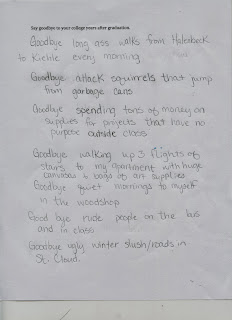 Say goodbye to your college years after graduation.
Goodbye long ass walks from Halenbeck
to Kiehle every morning
Goodbye attack squirrels that jump
from garbage cans
Goodbye spending tons of money on
supplies for projects that have no
purpose outside class
Goodbye walking up 3 flights of
stairs to my apartment with huge
canvases & bags of art supplies
Goodbye quiet mornings to myself
in the woodshop
Good bye rude people on the bus
and in class
Goodbye ugly winter slush/roads in
St. Cloud.